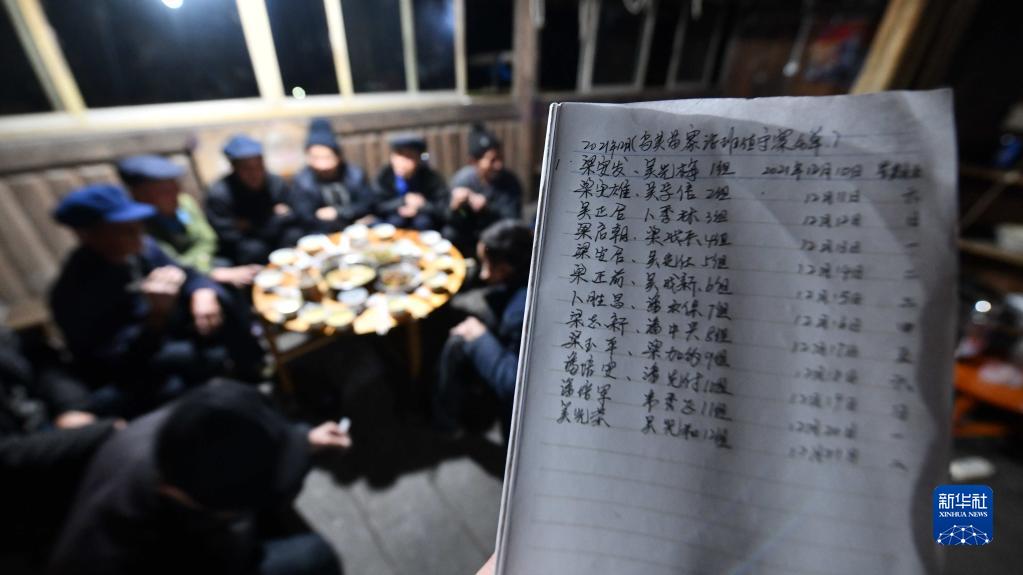 2021年12月(乌英苗寨治班值守寨名单)
1 梁安发、吴光梅 1组 2021年12月10日
梁安雄、吴学信 2组 12月11日 六
吴正启 卜李林 3组 12月12日 日
梁启朝、梁 4组 12月13日 一
梁安启、吴 5组 12月14日 二
梁正前、吴晓新 6组 12月15日 三
卜胜昌、潘 7组 12月16日 四
梁志新、潘中吴 8组 12月17日 五
梁玉平、梁加 9组 12月18日 六
潘培忠、潘光付 10组 12月19日 日
潘 军 韦秀 11组 12月20日 一
吴光荣 吴光和 12组 12月21日 二
新华社
XINHUA NEWS